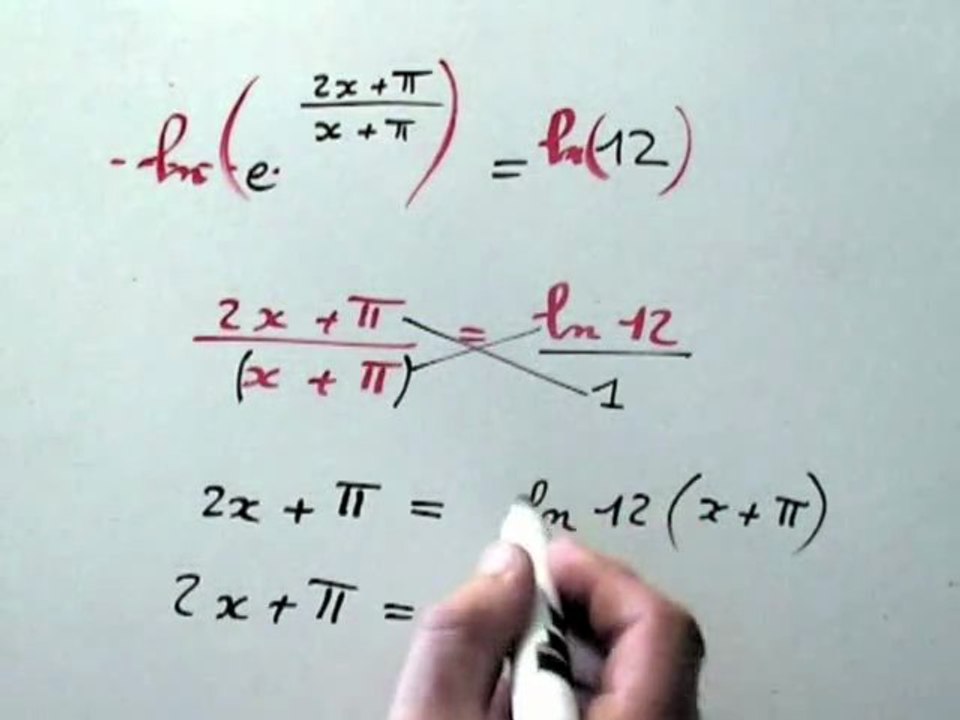 ln(e^(2x+π)/(x+π)) = ln(12)
(2x+π)/(x+π) = ln 12/1
2x+π = ln 12(x+π)
2x+π =